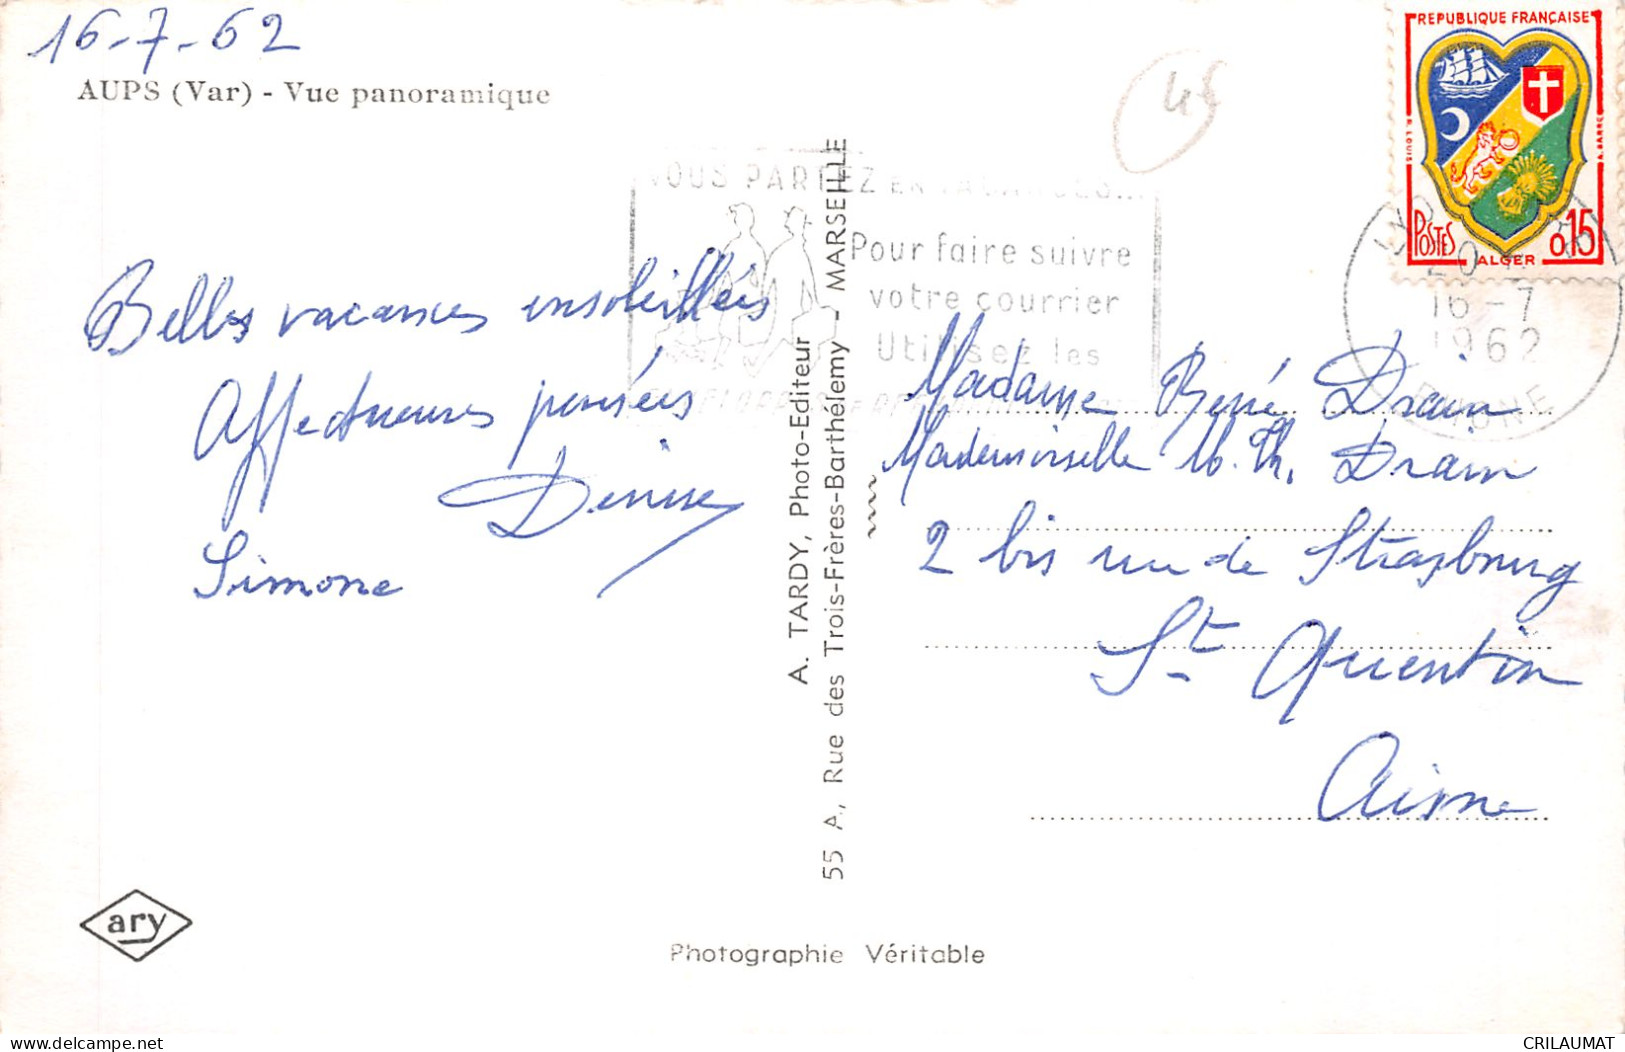 16-7-62
AUPS (Var) - Vue panoramique
45
REPUBLIQUE FRANÇAISE
POSTES
ALGER
0,15
VOUS PARTEZ EN VACANCES...
Pour faire suivre
votre courrier
Utilisez les
16-7
1962
RHONE
Belles vacances ensoleillées
Affectueuses pensées
Denise
Simone
A. TARDY, Photo-Editeur
55 A, Rue des Trois-Frères-Barthélemy - MARSEILLE
Madame René Drain
Mademoiselle M. Th. Drain
2 bis rue de Strasbourg
St Quentin
Aisne
ary
Photographie Véritable
delcampe.net
CRILAUMAT